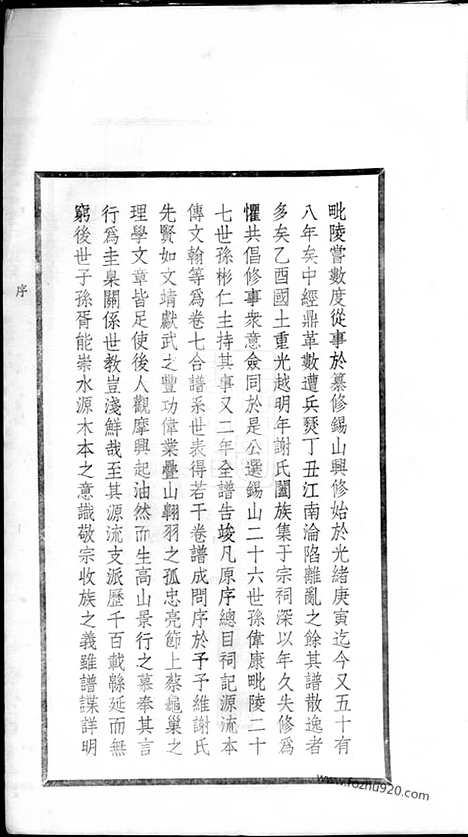 毗陵嘗數度從事於纂修錫山興修始於光緒庚寅迄今又五十有
八年矣中經鼎革數遭兵燹丁丑江南淪陷離亂之餘其譜散逸者
多矣乙酉國土重光越明年謝氏闔族集于宗祠深以年久失修爲
懼共倡修事衆意僉同於是公選錫山二十六世孫偉康毗陵二十
七世孫彬仁主持其事又二年全譜告竣凡原序總目祠記源流本
傳文翰等爲卷七合譜系世表得若干卷譜成問序於予予維謝氏
先賢如文靖獻武之豐功偉業疊山翱羽之孤忠亮節上蔡龜巢之
理學文章皆足使後人觀摩興起油然而生高山景行之慕奉其言
行爲圭臬關係世教豈淺鮮哉至其源流支派歷千百載緜延而無
窮後世子孫胥能崇水源木本之意識敬宗收族之義雖譜諜詳明
序
www.fozhu920.com